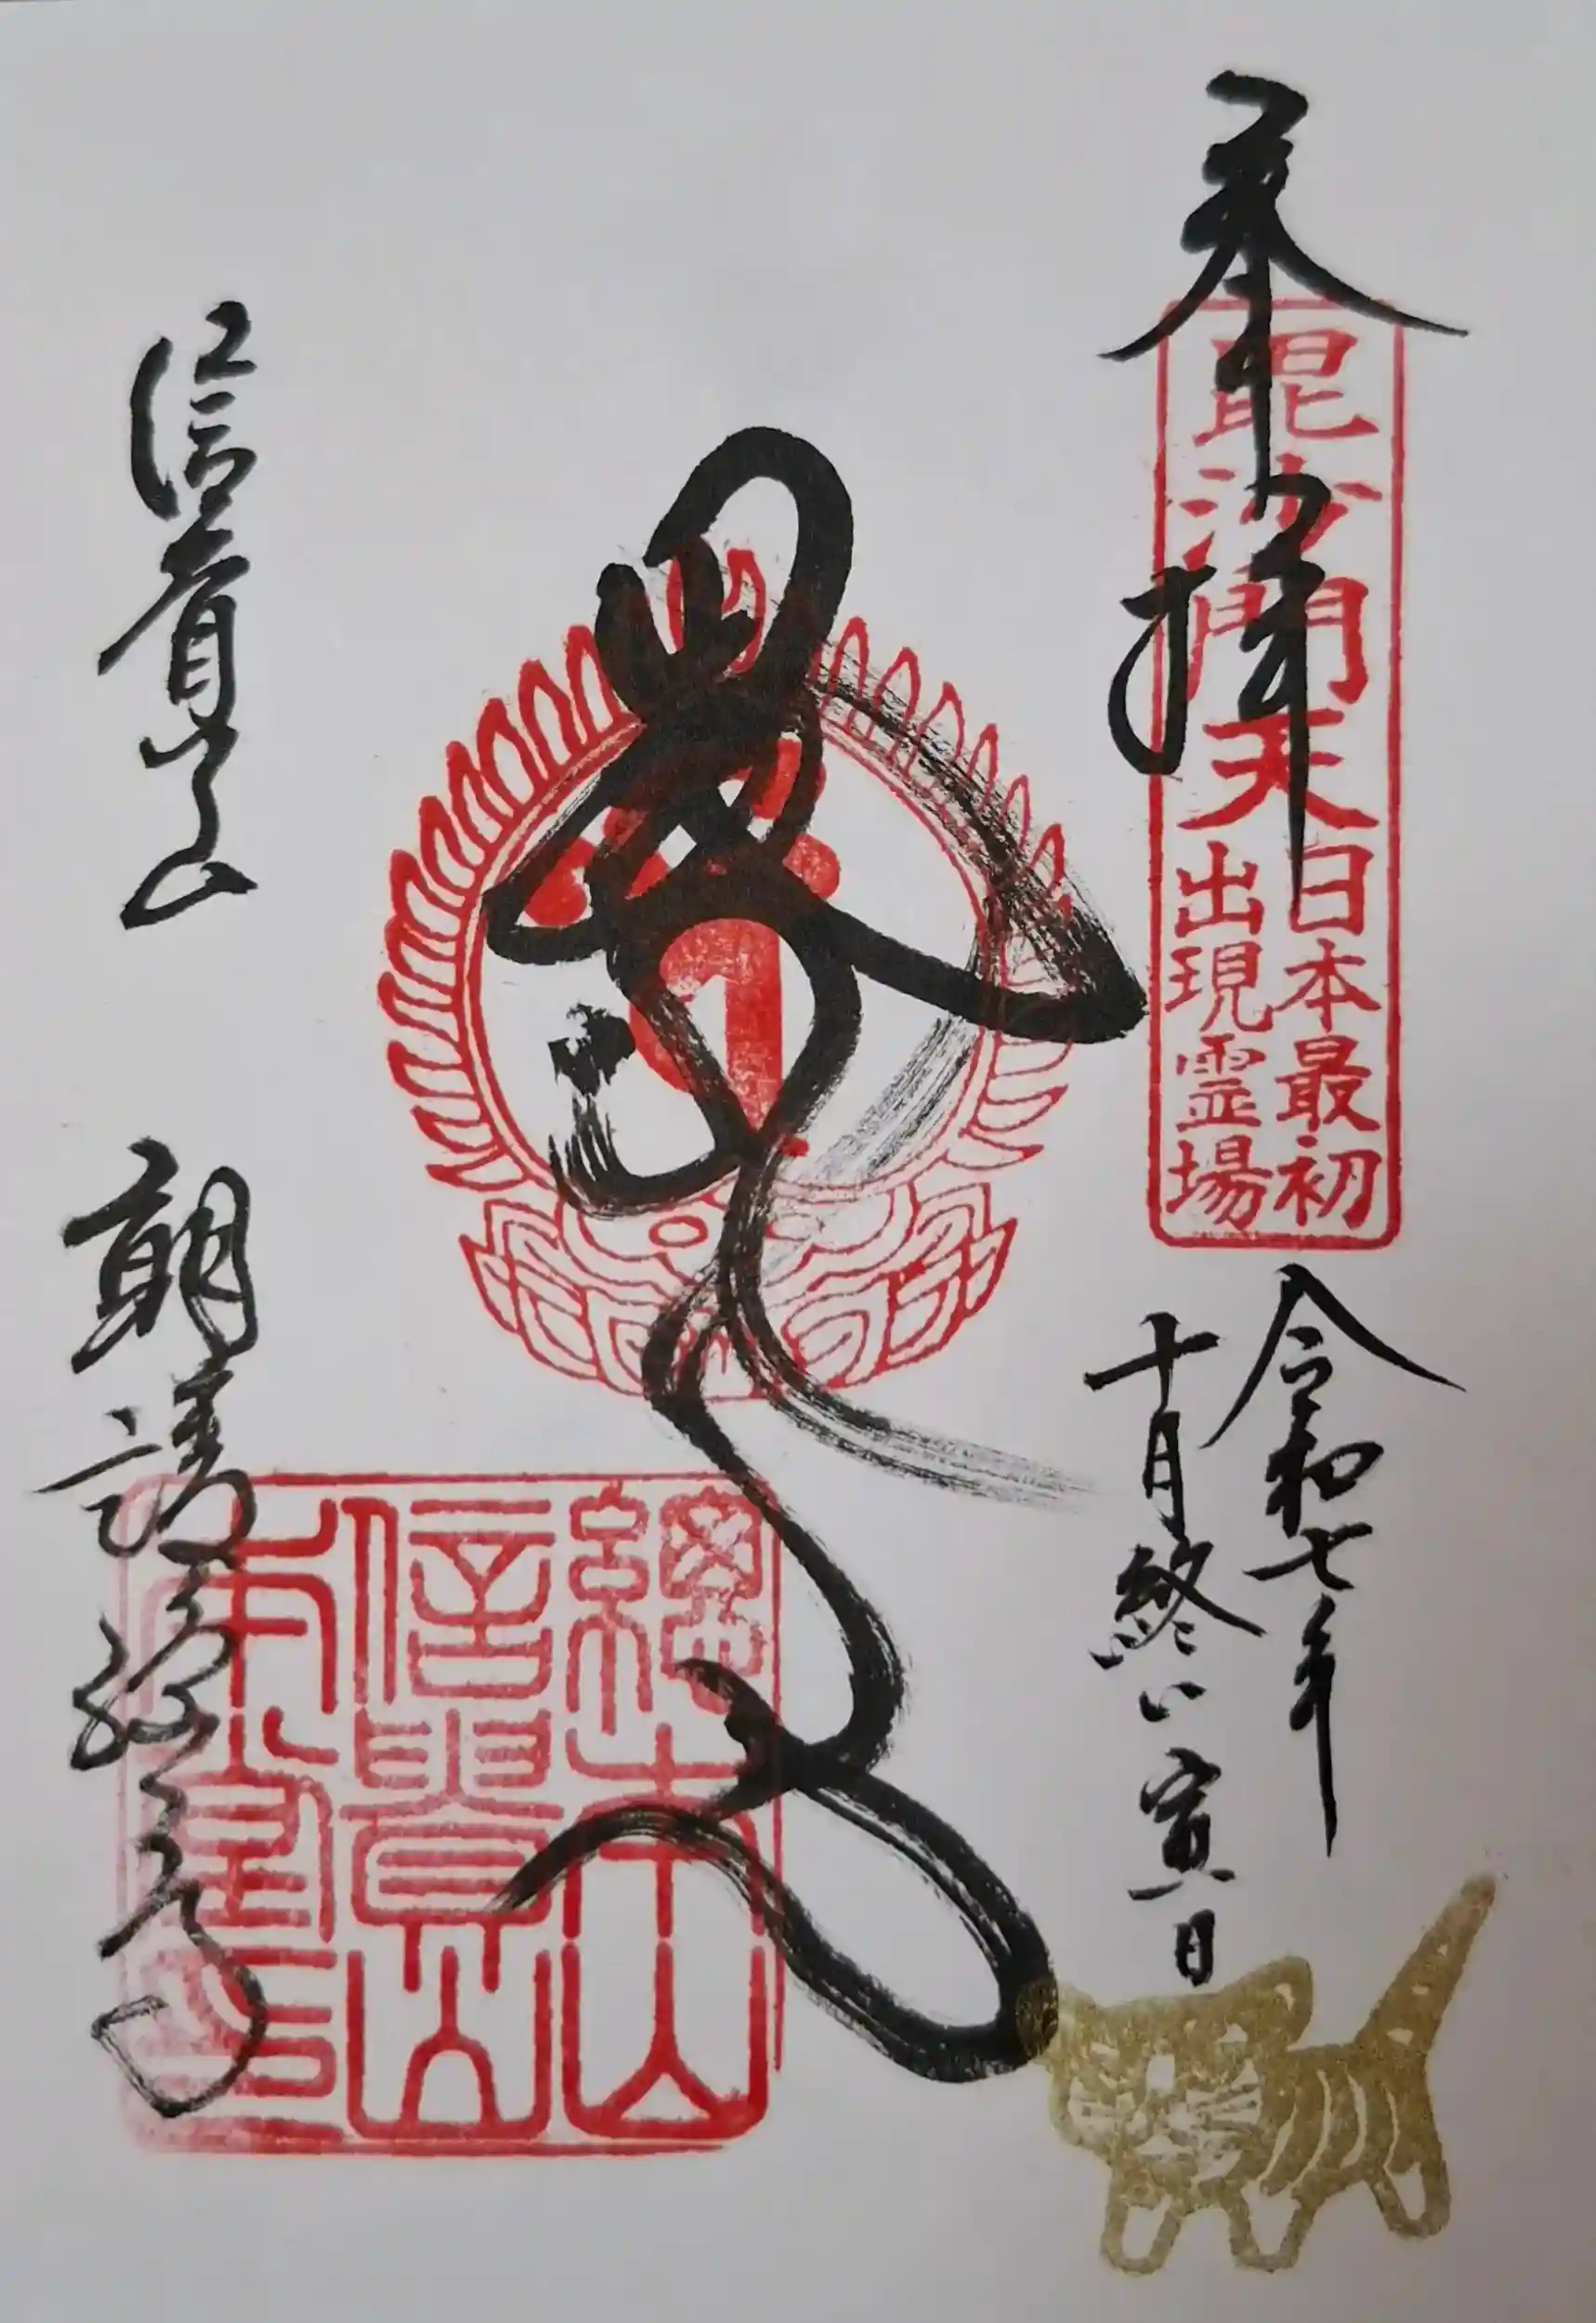 奉拝
毘沙門天
日本最初
出現霊場
令和七年
十月終い寅日
總本山
信貴山
本堂印
信貴山
朝護孫子寺